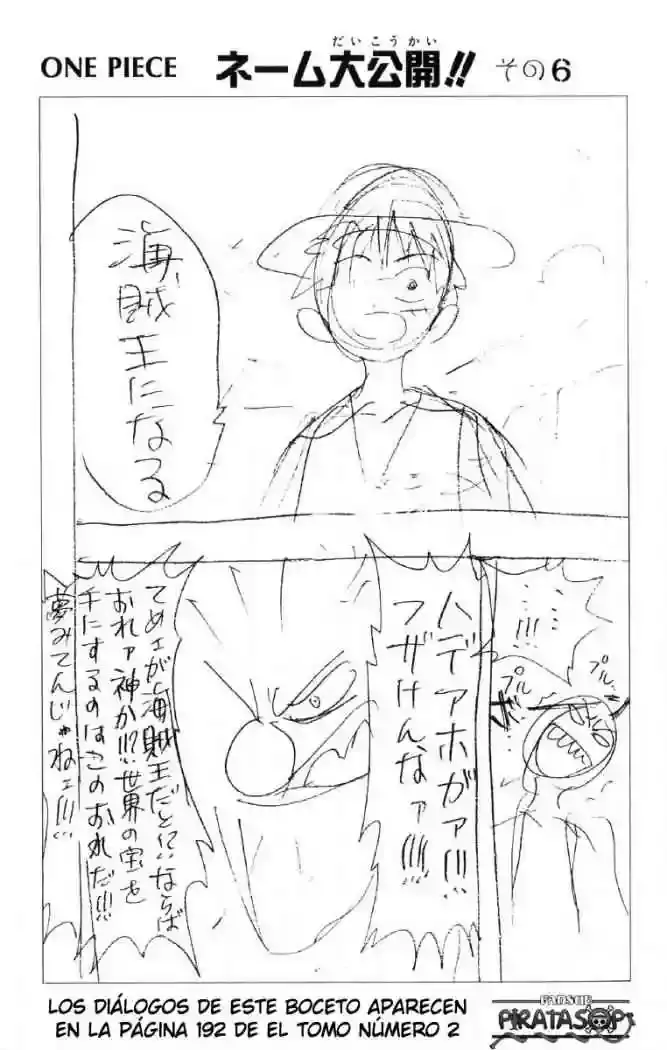 だいこうかい
ONE PIECE ネーム大公開!! その6
海賊
王に
なる
!!!
プルプル
プルプル
ハデアホがァ!!!
フザけんなァ!!!!
てめェが海賊王だと!?ならば
おれァ神か!!?世界の宝を
手にするのはこのおれだ!!!
夢みてんじゃねェ!!!
LOS DIÁLOGOS DE ESTE BOCETO APARECEN
EN LA PÁGINA 192 DE EL TOMO NÚMERO 2
FANSUB
PIRATASOP